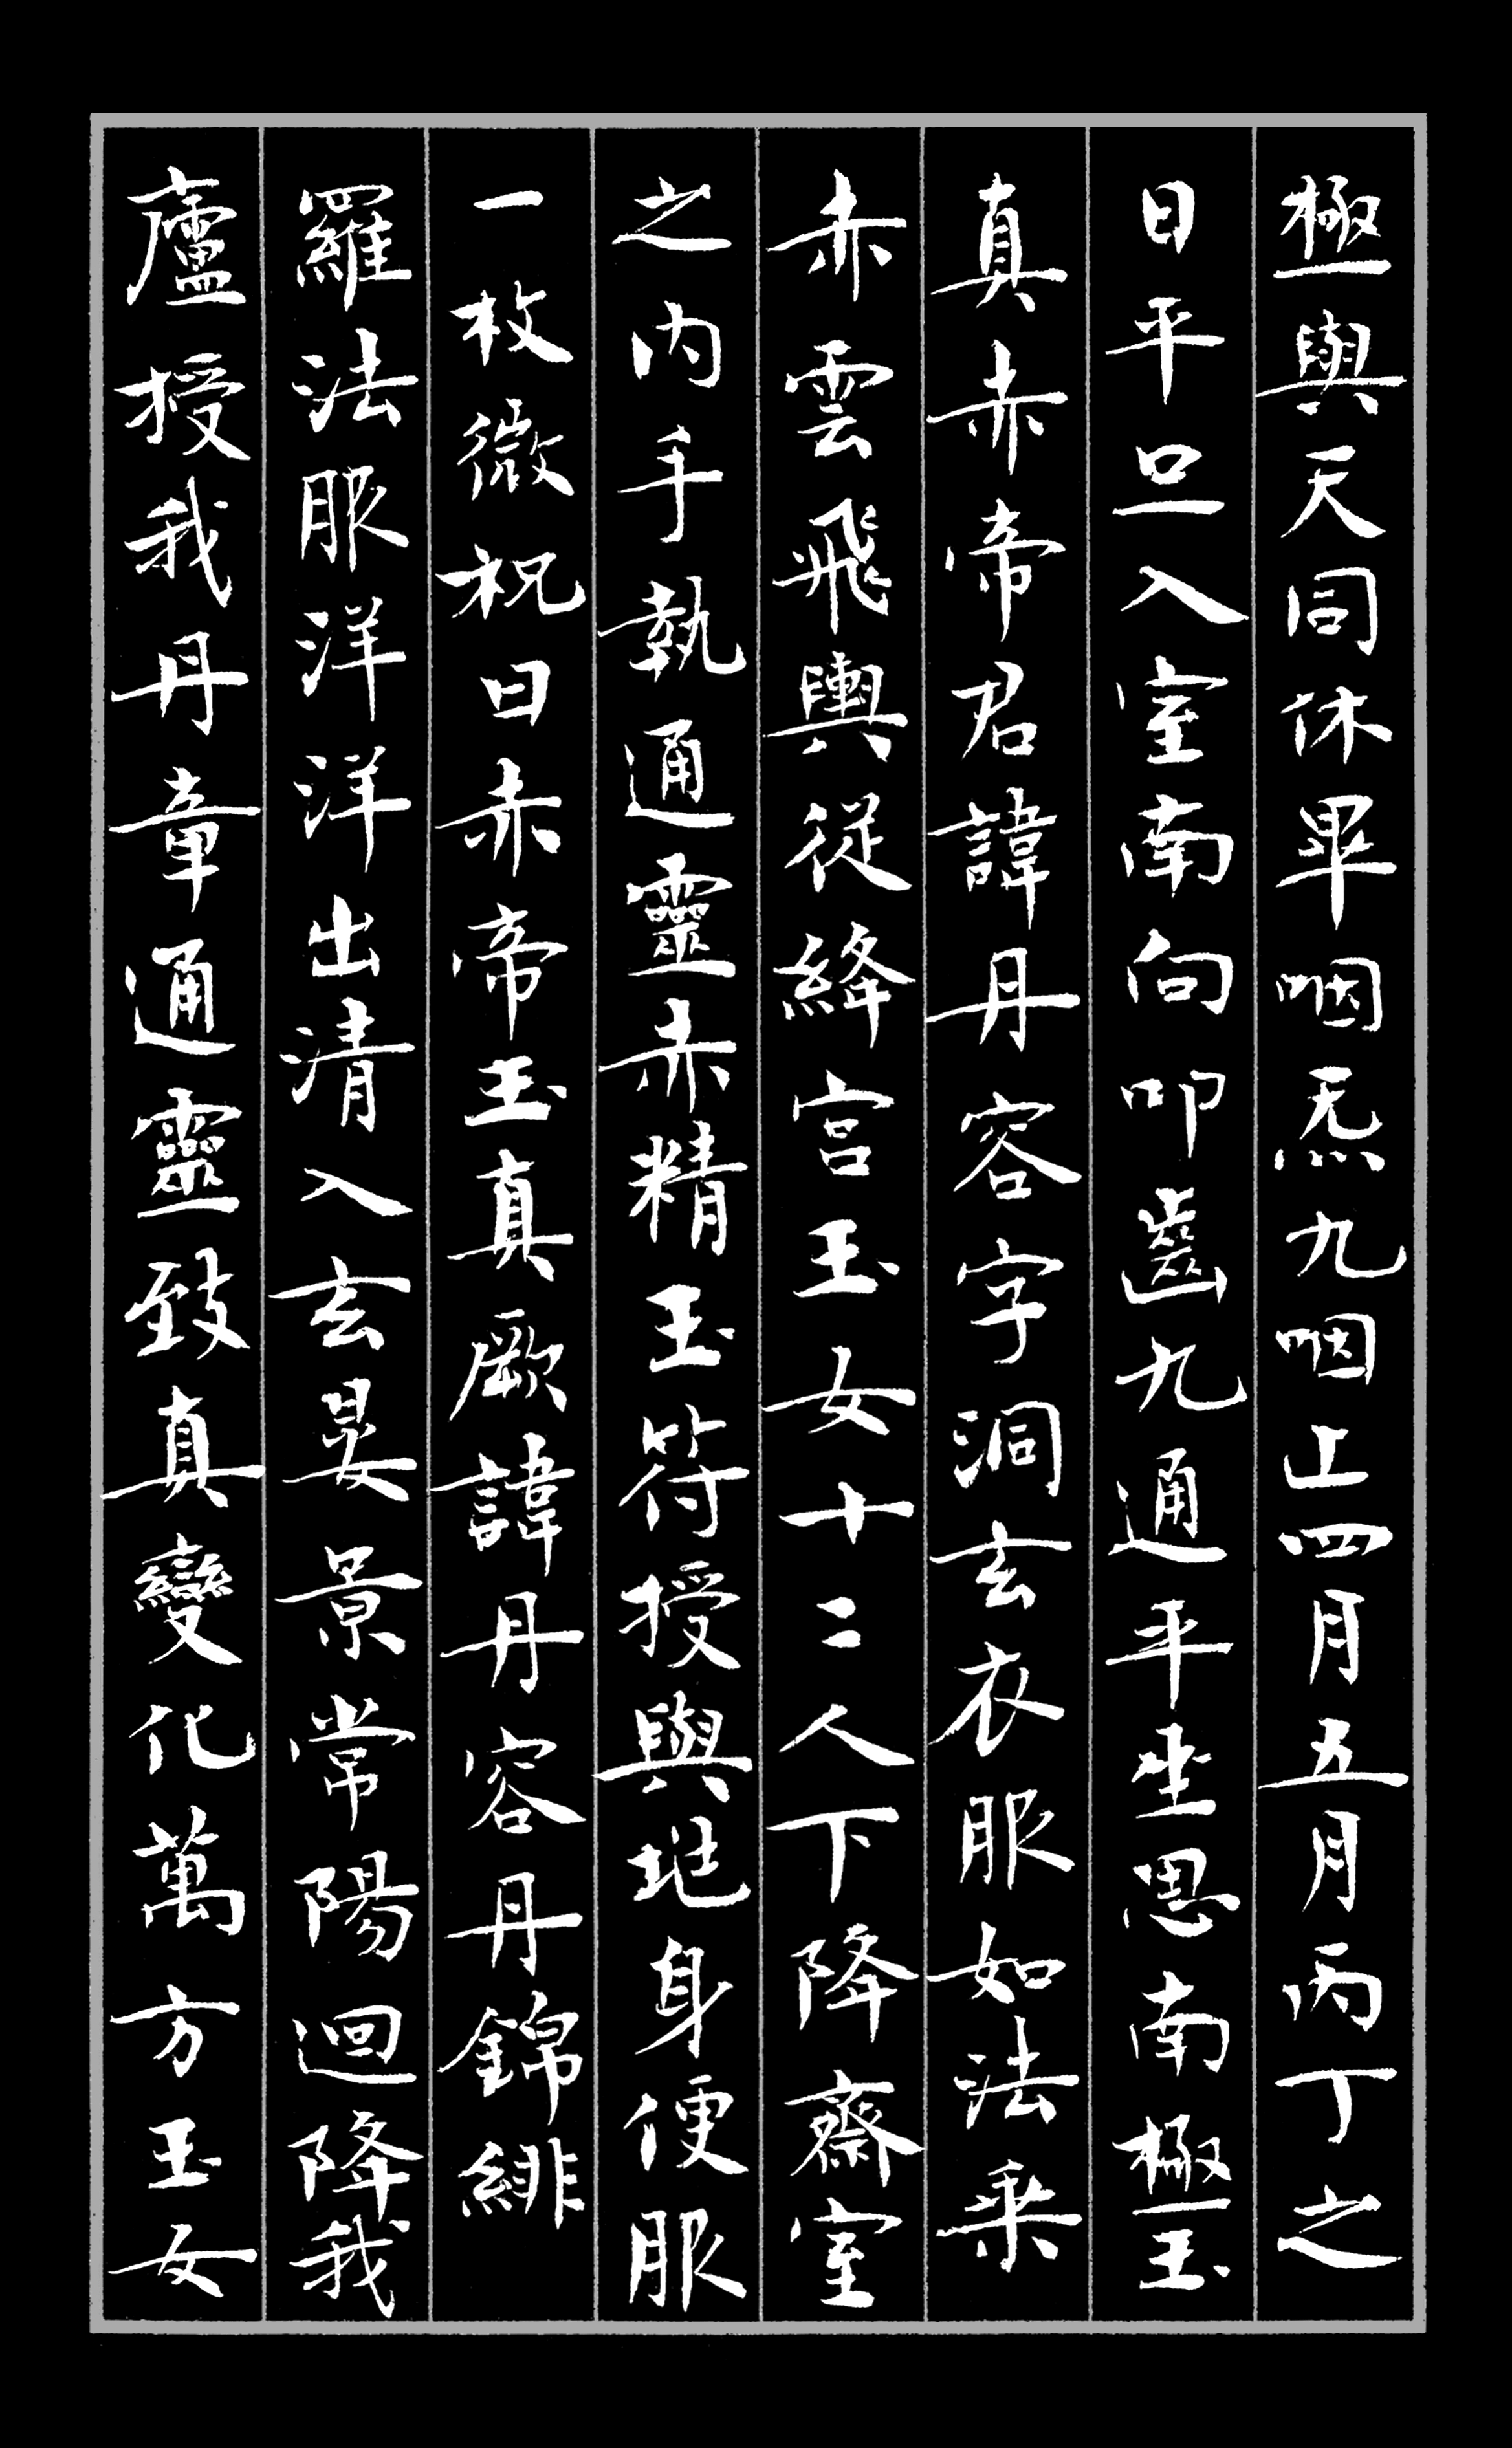 極與天同休畢咽炁九咽止四月五月丙丁之
日平旦入室南向叩齒九通平坐思南極玉
真赤帝君諱丹容字洞玄衣服如法乘
赤雲飛輿從絳宮玉女十二人下降齋室
之內手執通靈赤精玉符授與地身便服
一枚微祝曰赤帝玉真厥諱丹容丹錦緋
羅法服洋洋出清入玄晏景常陽迴降我
廬授我丹章通靈致真變化萬方玉女